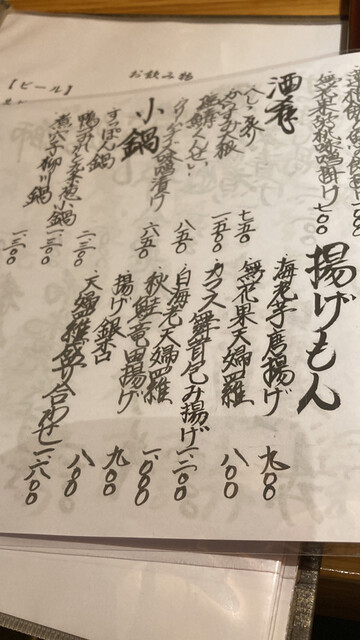 無花果 胡桃味噌掛け 七〇〇
酒肴
へしこ炙り 七五〇
からすみ大根 一、五〇〇
塩鯖くんせい 八五〇
クリームチーズ味噌漬け 六五〇
小鍋
すっぽん鍋 二、三〇〇
鴨つみれと葱小鍋 一、三〇〇
煮穴子柳川鍋 一、三〇〇
揚げもん
海老芋唐揚げ 九〇〇
無花果天婦羅 八〇〇
カラスミ舞茸包み揚げ 一、二〇〇
白海老天婦羅 一、〇〇〇
秋鮭竜田揚げ 九〇〇
揚げ銀杏 八〇〇
天婦羅盛り合わせ 一、八〇〇
お飲み物
【ビール】